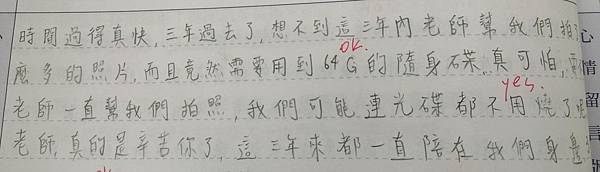 時間過得真快,三年過去了,想不到這三年內老師幫我們拍
ok.
麼多的照片,而且竟然需要用到64G的隨身碟,真可怕,
yes.
老師一直幫我們拍照,我們可能連光碟都不用燒了吧
老師,真的是辛苦你了,這三年來都一直陪在我們身邊
心情留言